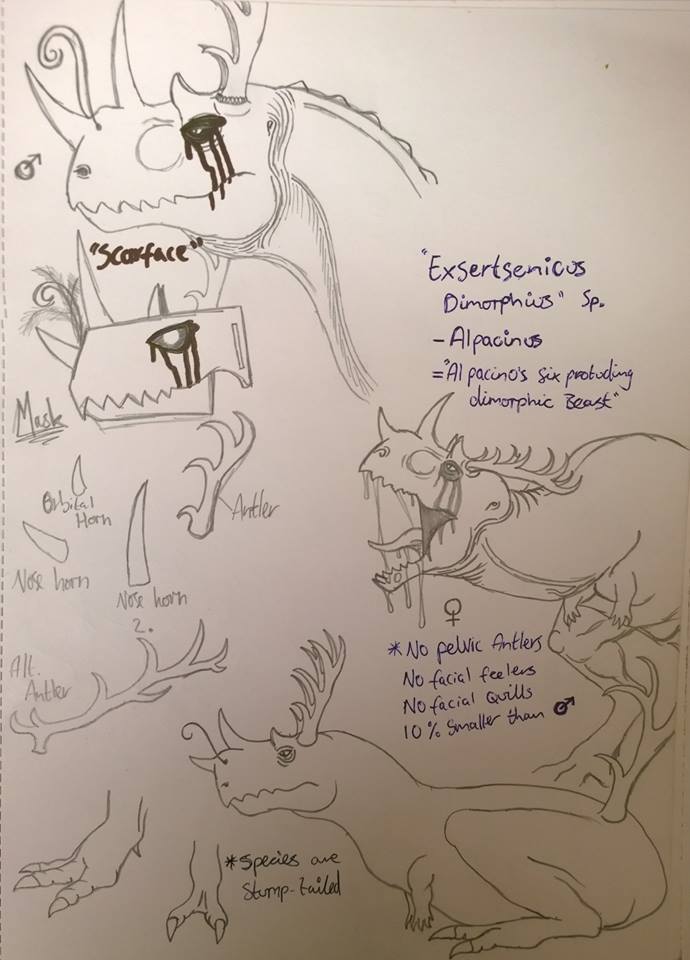 ♂
"Scarface"
"Exsertsenicus
Dimorphius" Sp.
- Alpacinus
= "Alpacino's six protuding
dimorphic Beast"
Mask
Orbital
Horn
Antler
Nose horn
Nose horn
2.
♀
* No pelvic Antlers
No facial feelers
No facial Quills
10% smaller than ♂
Alt.
Antler
* Species are
Stump-tailed